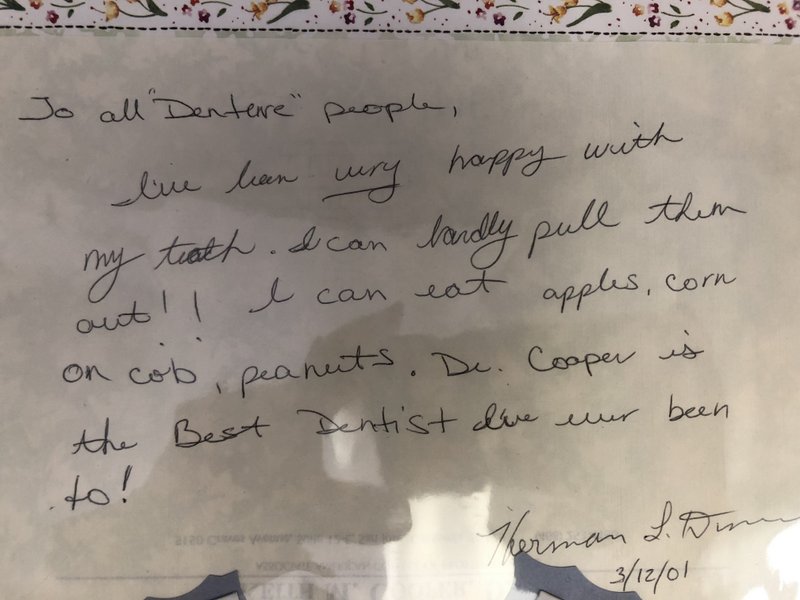 To all "Denture" people,
I've been very happy with
my teeth. I can hardly pull them
out!! I can eat apples, corn
on cob, peanuts. Dr. Cooper is
the Best Dentist I've ever been
to!
Herman L.
3/12/01